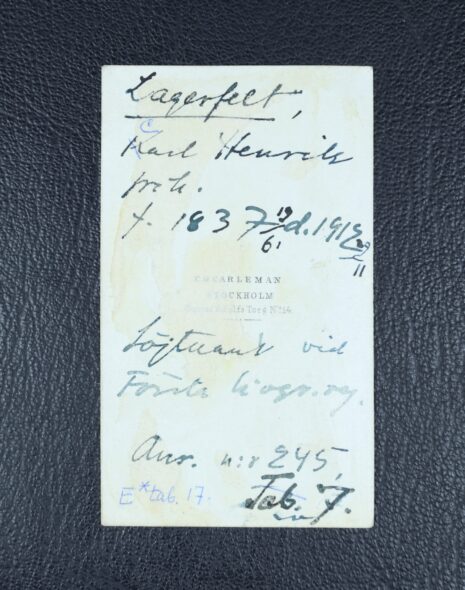 Lagerfelt,
C
Karl Henrik
frih.
f. 1837 19/6, d. 1912 29/11
C.G. CARLEMAN
STOCKHOLM
Gustaf Adolfs Torg No 14
Löjtnant vid
Första livgr.reg.
Anr. n:r 245,
E* tab. 17. Tab. 7.